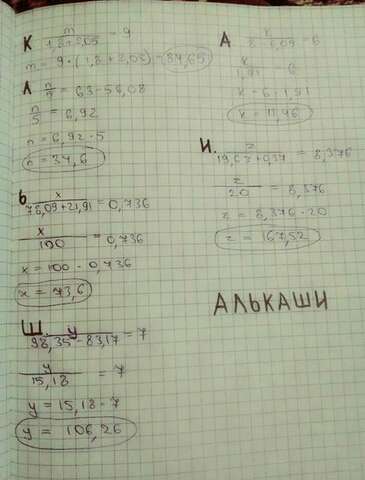 К m/1,8+2,05 = 9
m = 9·(1,8+2,05) = 34,65
Л n/5 = 63-56,08
n/5 = 6,92
n = 6,92·5
n = 34,6
Ь x/78,09+21,91 = 0,736
x/100 = 0,736
x = 100·0,736
x = 73,6
Ш. y/98,35-83,17 = 7
y/15,18 = 7
y = 15,18·7
y = 106,26
А k/8-6,09 = 6
k/1,91 = 6
k = 6·1,91
k = 11,46
И. z = 8,376
z/20 = 8,376
z = 8,376·20
z = 167,52
АЛЬКАШИ